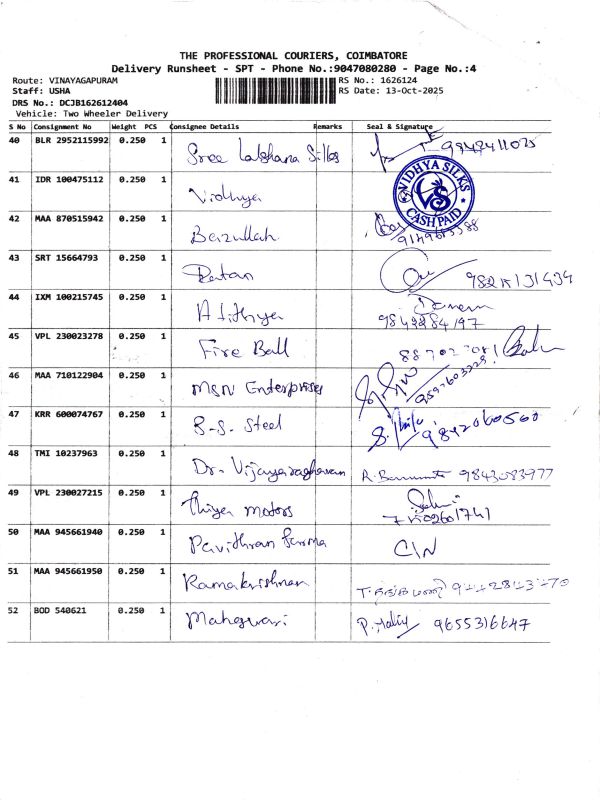 THE PROFESSIONAL COURIERS, COIMBATORE
Delivery Runsheet - SPT - Phone No.:9047080280 - Page No.:4
Route: VINAYAGAPURAM RS No.: 1626124
Staff: USHA RS Date: 13-Oct-2025
DRS No.: DCJB162612404
Vehicle: Two Wheeler Delivery
S No Consignment No Weight PCS Consignee Details Remarks Seal & Signature
40 BLR 2952115992 0.250 1 Sree Lakshana Silks
41 IDR 100475112 0.250 1 Vidhya VIDHYA SILKS VS CASH PAID
42 MAA 870515942 0.250 1 Baizullah
43 SRT 15664793 0.250 1 Ratan
44 IXM 100215745 0.250 1 Atithya 9842284197
45 VPL 230023278 0.250 1 Fire Ball
46 MAA 710122904 0.250 1 MSN Enterprises
47 KRR 600074767 0.250 1 S-S. Steel 9842060560
48 TMI 10237963 0.250 1 Dr. Vijayaraghavan 9843083977
49 VPL 230027215 0.250 1 Thiya motors
50 MAA 945661940 0.250 1 Pavithran farma C/N
51 MAA 945661950 0.250 1 Ramakrishnan
52 BOD 540621 0.250 1 Maheswari 9655316647